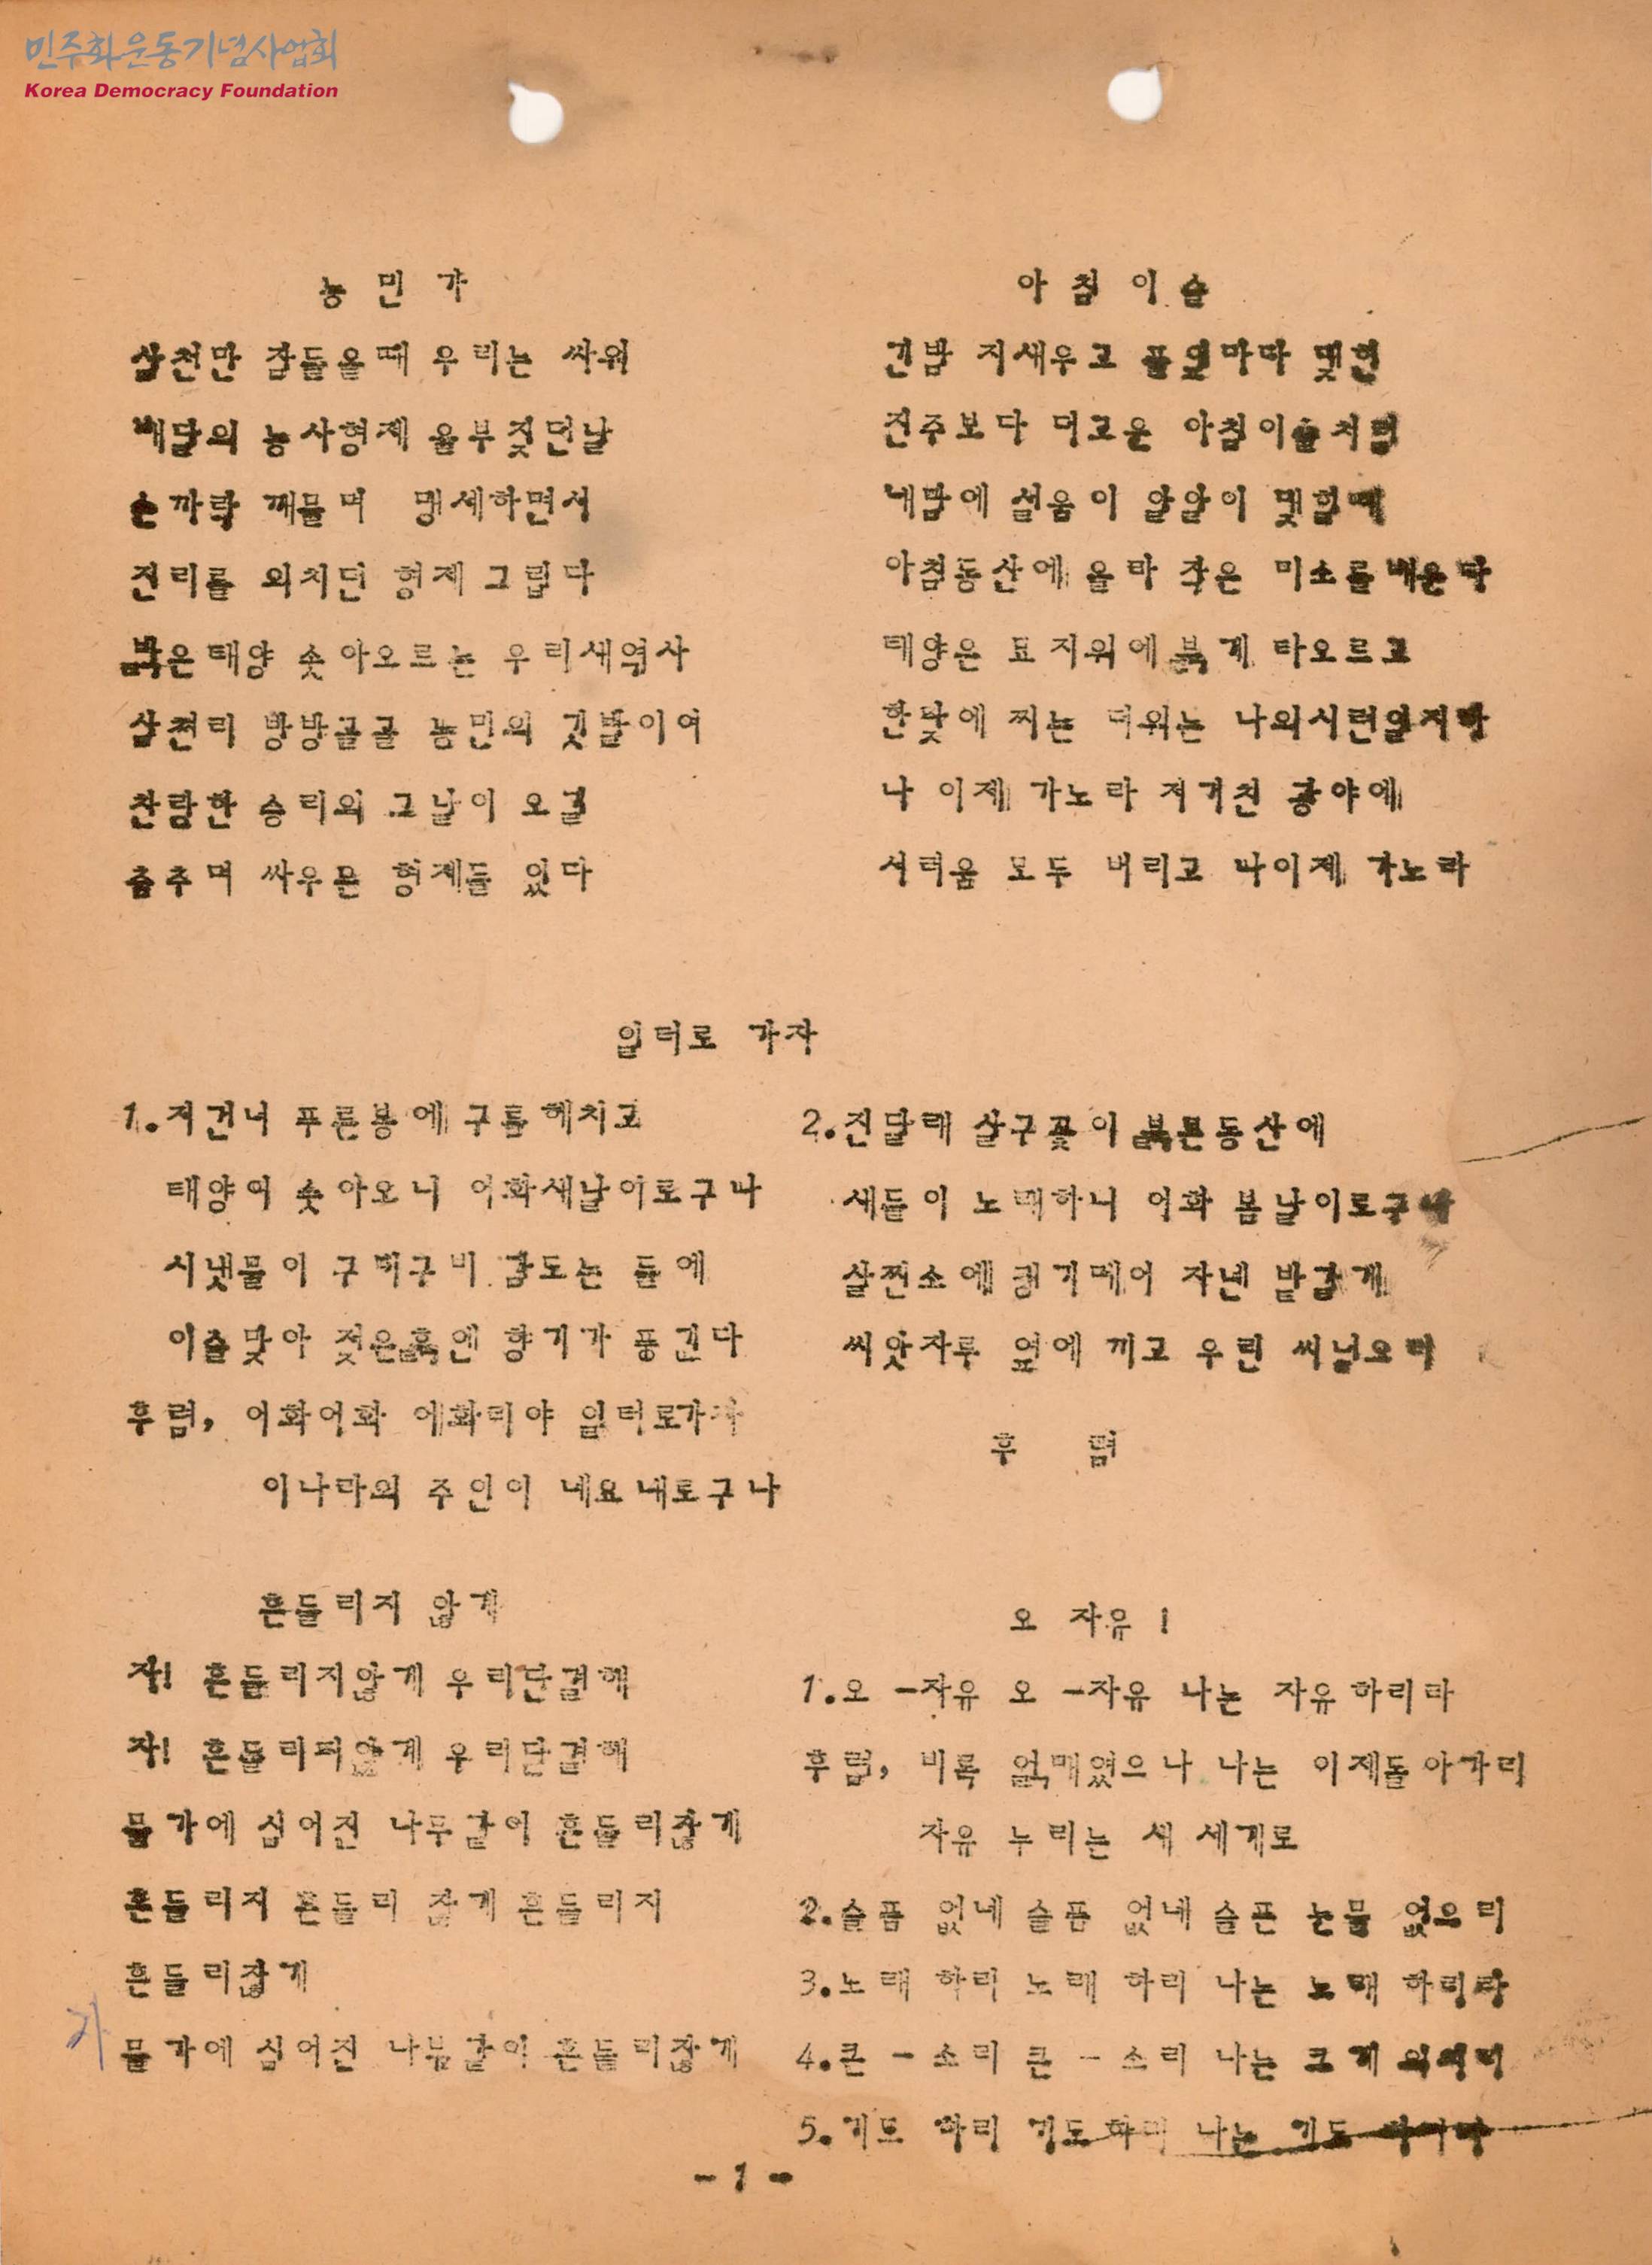 민주화운동기념사업회
Korea Democracy Foundation
농 민 가
삼천만 잠들올때 우리는 싸워
배달의 농사형제 울부짖던날
손가락 깨물며 맹세하면서
진리를 외치던 형제 그립다
밝은태양 솟아오르는 우리새역사
삼천리 방방골골 농민의 깃발이여
찬란한 승리의 그날이 오길
춤추며 싸우는 형제들 있다
아 침 이 슬
긴밤 지새우고 풀잎마다 맺힌
진주보다 더고운 아침이슬처럼
내맘에 설움이 알알이 맺힐때
아침동산에 올라 작은 미소를배운다
태양은 묘지위에붉게 타오르고
한낮에 찌는 더위는 나의시련일지라
나 이제 가노라 저거친 광야에
서러움 모두 버리고 나이제 가노라
일터로 가자
1.저건너 푸른봉에구름헤치고
태양이 솟아오니 어화새날이로구나
시냇물이 구비구비 감도는 들에
이슬맞아 젖은흙엔 향기가 풍긴다
후렴, 어화어화 에화리야 일터로가자
이나라의 주인이 네요내로구나
2.진달래 살구꽃이 붉은동산에
새들이 노래하니 어화 봄날이로구나
살찐소에쟁기메어 자넨 밭갈게
씨앗자루 옆에 끼고 우린 씨님으리
후 렴
흔들리지 않게
자! 흔들리지않게 우리단결해
자! 흔들리지않게 우리단결해
물가에 심어진 나무같이 흔들리잖게
흔들리지 흔들리 잖게 흔들리지
흔들리잖게
가
물가에 심어진 나무같이 흔들리잖게
오 자유!
1.오 -자유 오 -자유 나는 자유하리라
후렴, 비록 얽매였으나 나는 이제돌아가리
자유 누리는 새 세계로
2.슬픔 없네 슬픔 없네 슬픈 눈물 없으리
3.노래 하리 노래 하리 나는 노래 하리라
4.큰 - 소리 큰 - 소리 나는 크게 외치리
5.기도 하리 기도하리 나는 기도 하리라
- 1 -